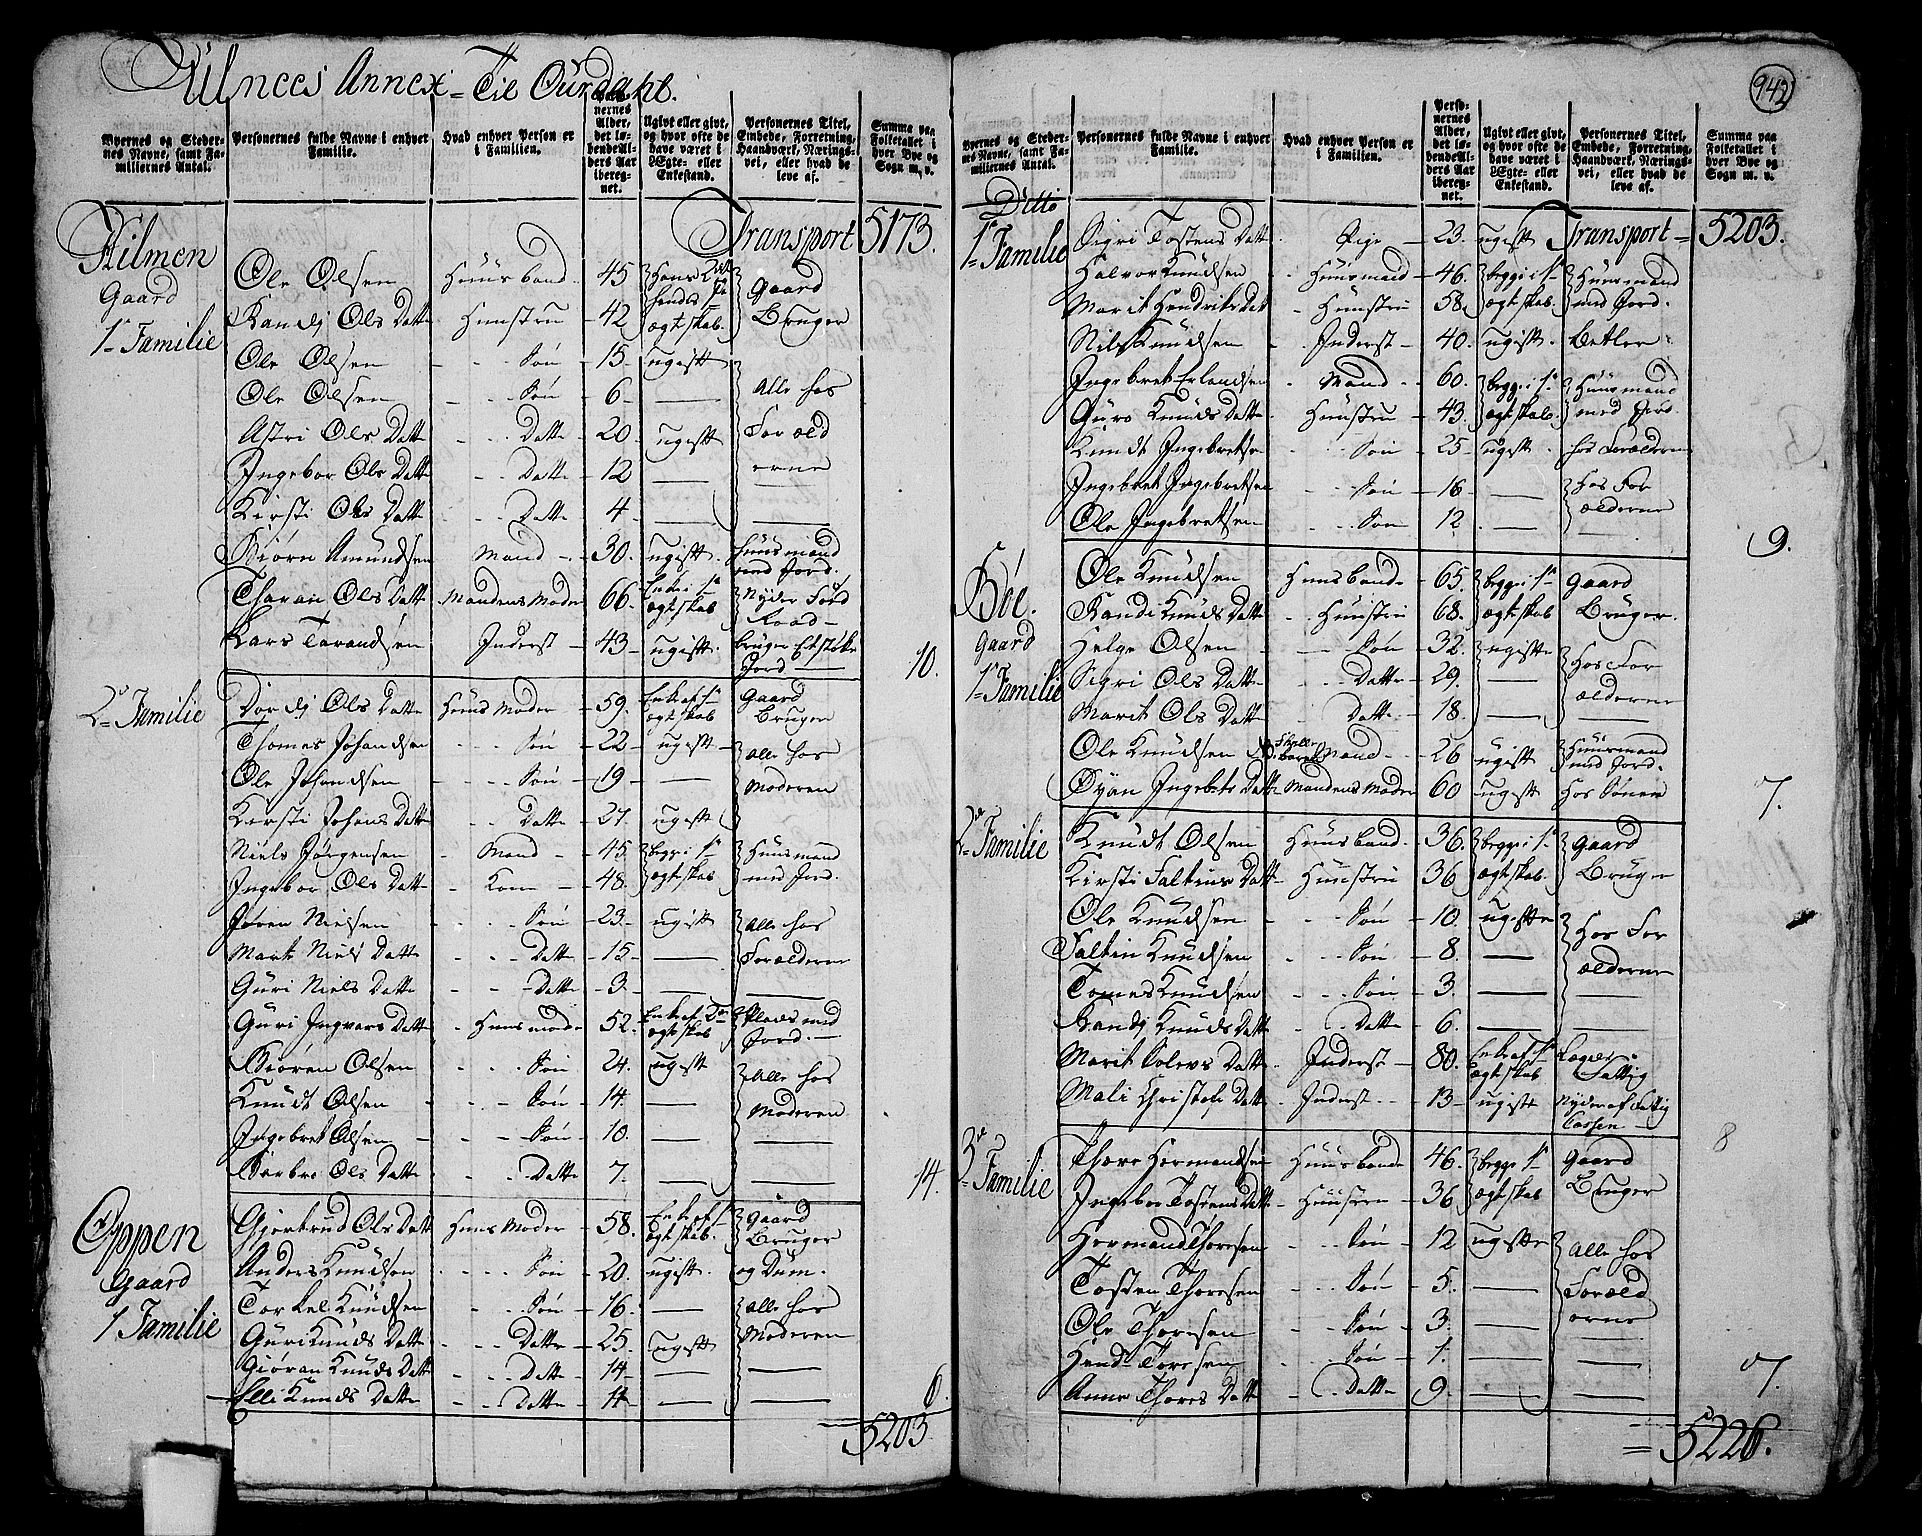 Ulnees Annex Til Ourdahl.
Byernes og Steder-nes Navne, samt Fa-miliernes Antal.
Personernes fulde Navne i enhver Familie.
Hvad enhver Person er i Familien.
Perso-nernes Alder, det lø-bende Al-ders Aar iberegnet.
Ugivt eller givt, og hvor ofte de have været i Ægte- eller Enkestand.
Personernes Titel, Embede, Forretning, Haandværk, Nærings-vei, eller hvad de leve af.
Summa paa Folketallet i hver Bye og Sogn m. v.
Transport 5173.
Hilmen Gaard 1te Familie
Ole Olsen Huusbond 45 Hans 2det hendes 1te Ægteskab. Gaard Bruger
Randj Ols Datter Hunstru 42
Ole Olsen - Søn - 15 - ugift
Ole Olsen - Søn - 6 - Alle hos Forælderne
Astri Ols Datt - Datte - 20 - ugift
Ingebor Ols Datt - Datte - 12
Kirsti Ols Datt - Datte - 4
Biørn Amundsen - Mand - 30. ugift. Huusmand med Jord.
Tharan Ols Datt Mandens Moder 66 Enke i 1te Ægteskab Nyder Føderaad
Lars Tarandsen Inderst - 43 - ugift. bruger Et støke Jord 10.
2de Familie
Dordj Ols Datte Huus Moder - 59. Enke af 1te Ægteskab Gaard Bruger
Thomes Johandsen - Søn - 22 - ugift Alle hos Moderen
Ole Johandsen - Søn - 19
Kirsti Johans Datt - Datte - 27. ugift
Niels Jørgensen - Mand - 45. begge i 1te Ægteskab Huusmand med Jord.
Ingebor Ols Datt - Kone - 48.
Jøren Nielsen - Søn - 23 - ugift Alle hos Forælderne
Marit Niels Datte - Datte - 15
Guri Niels Datte - Datte - 3
Guri Ingvars Datt - Huusmoder 52. Enke af 2den Ægteskab Plads med Jord.
Biøren Olsen - Søn - 24. ugift Alle hos Moderen
Knudt Olsen - Søn - 14.
Ingebret Olsen - Søn - 10.
Barbro Ols Datt - Datte - 7. 14.
Oppen Gaard 1 Familie
Gjertrud Ols Datt Huus Moder - 58. Enke af 1te Ægteskab. Gaard Bruger og Dum.
Anders Knudsen - Søn - 20. ugift.
Torkel Knudsen - Søn - 16. Alle hos Moderen
Guri Knuds Datt - Datte - 25. ugift
Giøran Knuds Datt - Datte - 14
Elli Knuds Datte - Datte - 11 6.
5203
942
Byernes og Steder-nes Navne, samt Fa-miliernes Antal.
Personernes fulde Navne i enhver Familie.
Hvad enhver Person er i Familien.
Perso-nernes Alder, det lø-bende Al-ders Aar iberegnet.
Ugivt eller givt, og hvor ofte de have været i Ægte- eller Enkestand.
Personernes Titel, Embede, Forretning, Haandværk, Nærings-vei, eller hvad de leve af.
Summa paa Folketallet i hver Bye og Sogn m. v.
Ditto 1te Familie
Sigri Tostens Datt. Pige - 23. ugift Transport = 5203.
Halvor Knudsen - Huusmand - 46. begge i 1te Ægteskab. Huusmand med Jord.
Marit Hendriks Dat - Hunstru - 58.
Nils Knudsen - Inderst - 40. ugift. Betler
Ingebret Erlandsen - Mand - 60. begge i 1te Ægteskab. Huusmand med Jord
Guro Knuds Datt. Hunstru - 43.
Knudt Ingebretsen - Søn - 25 - ugift. hos Forælderne
Ingebret Ingebretsen - Søn - 16 - Hos Forælderne
Ole Ingebretsen - Søn - 12 9.
Bøe. Gaard 1te Familie
Ole Knudsen Huusbonde - 65. begge i 1te Ægteskab Gaard Bruger.
Randi Knuds Datt - Hunstru - 68.
Helge Olsen - Søn - 32. ugifte Hos Forælderne
Sigri Ols Datt - Datte - 29.
Marit Ols Datt - Datte - 18.
Ole Knudsen Mand - 26 ugift Huusmand med Jord.
Øyan Ingebrts Datt Mandens Moder 60 ugift Hos Sønen 7.
2de Familie
Knudt Olsen Huusbond - 36. begge i 1te Ægteskab. Gaard Bruger
Kirsti Faltins Datt - Hunstru - 36
Ole Knudsen - Søn - 10. ugifte Hos Forælderne
Faltin Knudsen - Søn - 8.
Tomes Knudsen - Søn - 3.
Randj Knuds Datt - Datte - 6.
Marit Datt - Inderst - 80. Enke af 1te Ægteskab Fattig
Mali Christofe Datt - Inderst - 13 - ugifte Nyder af Fattig Cassen 8
3de Familie
Thore Hermandsen Huusbonde - 46. begge 1te Ægteskab Gaard Bruger
Ingebor Tostens Datt - Hunstru - 36
Hermand Thoresen - Søn - 12 ugifte Alle hos Forælderne
Tosten Thoresen - Søn - 5.
Ole Thoresen - Søn - 3.
Toresen - Søn - 1.
Anne Thores Datt - Datte - 9 7.
= 5226.